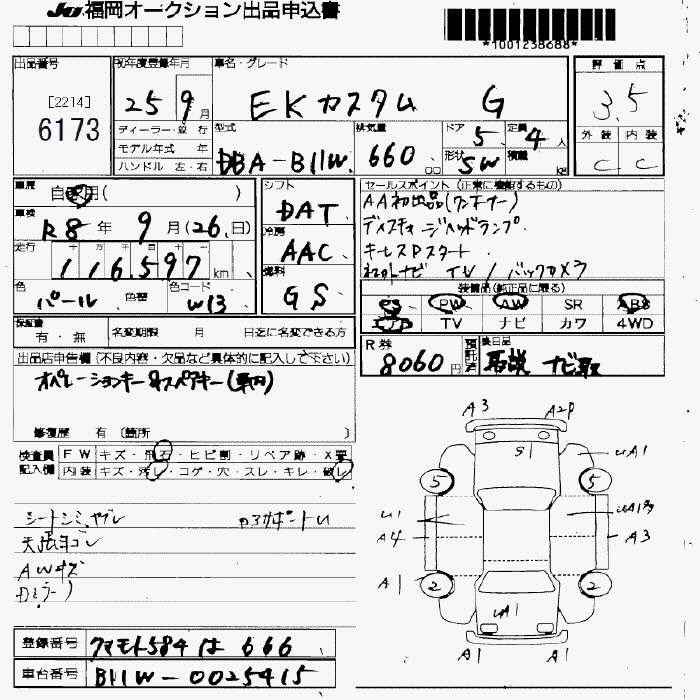 JU 福岡オークション出品申込書
*1001238688*
出品番号
[2214]
6173
初年度登録年月
25 9月
車名・グレード
EKカスタム G
評価点
3.5
外装 内装
C C
ディーラー・並行
モデル年式 年
ハンドル 左・右
型式
DBA-B11W
排気量
660 cc
ドア 5
形状 SW
定員 4人
積載 kg
車歴
自家用( )
車検
R8年 9月(26.日)
走行
十 万 千 百 十 一
116,597 km
色 パール 色替
色コード W13
シフト
DAT
冷房
AAC
燃料
GS
セールスポイント (正常に機能するもの)
AA初出品(ワンオーナー)
ディスチャージヘッドランプ.
キーレスPスタート
社外ナビ TV / バックカメラ
装備品(純正品に限る)
PS PW AW SR ABS
エアB TV ナビ カワ 4WD
保証書
有・無
名変期限 月 日迄に名変できる方
R券
8060円
預託済
後日品
取説 ナビ取
出品店申告欄 (不良内容・欠品など具体的に記入して下さい)
オペレーションキー &スペアキー(車内)
修復歴 有 〔箇所 〕
検査員記入欄
FW キズ・飛石・ヒビ割・リペア跡・X要
内装 キズ・汚レ・コゲ・穴・スレ・キレ・破レ
シートシミ,ヤブレ
天張ヨゴレ
AWキズ
A3 A2P
S1 UA1
5 5
U1
A4 A3
A1
2 2
UA1
A1 A1
登録番号 クマモト584 は 666
車台番号 B11W-0025415